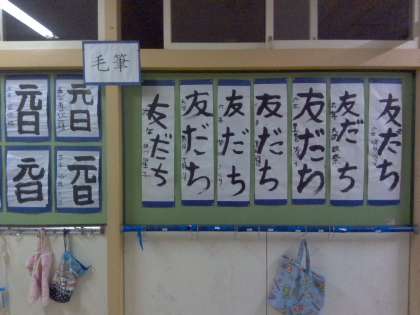 毛筆
元日
元日
元日
元日
友だち
友だち
友だち
友だち
友だち
友だち
友だち